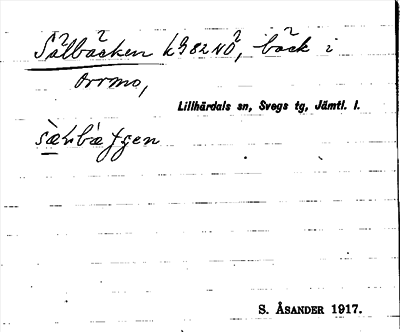 Sälbäcken k982NÖ, bäck i
Orrmo,
Lillhärdals sn, Svegs tg, Jämtl. l.
S. ÅSANDER 1917.